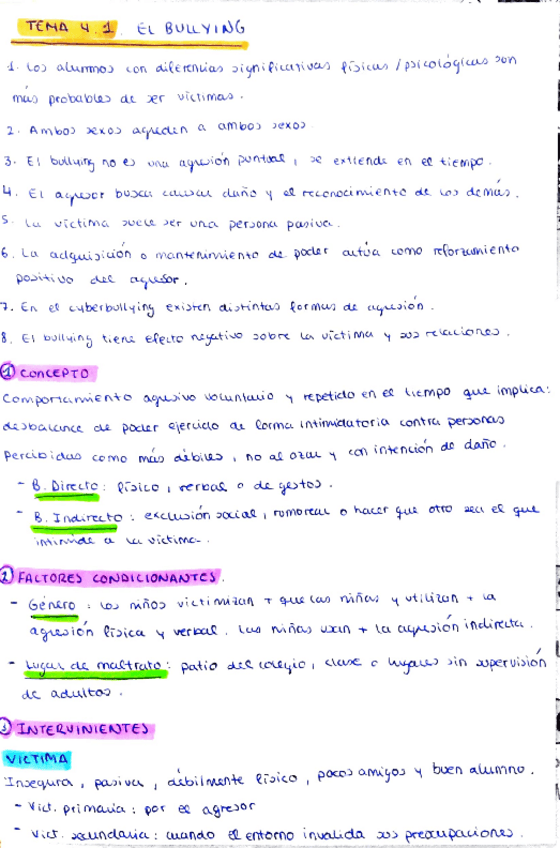 TEMA 4.1. EL BULLYING
1. Los alumnos con diferencias significativas físicas / psicológicas son
más probables de ser víctimas.
2. Ambos sexos agreden a ambos sexos
3. El bullying no es una agresión puntual, se extiende en el tiempo.
4. El agresor busca causar daño y el reconocimiento de los demás.
5. La víctima suele ser una persona pasiva.
6. La adquisición o mantenimiento de poder actúa como reforzamiento
positivo del agresor.
7. En el cyberbullying existen distintas formas de agresión.
8. El bullying tiene efecto negativo sobre la víctima y sus relaciones.
1 CONCEPTO
Comportamiento agresivo voluntario y repetido en el tiempo que implica:
desbalance de poder ejercido de forma intimidatoria contra personas
percibidas como más débiles, no al azar y con intención de daño.
- B. Directo: físico, verbal o de gestos.
- B. Indirecto: exclusión social, rumorear o hacer que otro sea el que
intimide a la víctima.
2 FACTORES CONDICIONANTES.
- Género: los niños victimizan + que las niñas y utilizan + la
agresión física y verbal. Las niñas usan + la agresión indirecta.
- Lugar de maltrato: patio del colegio, clase o lugares sin supervisión
de adultos.
3 INTERVINIENTES
VICTIMA
Insegura, pasiva, débilmente físico, pocos amigos y buen alumno.
- Vict. primaria: por el agresor
- Vict. secundaria: cuando el entorno invalida sus preocupaciones.